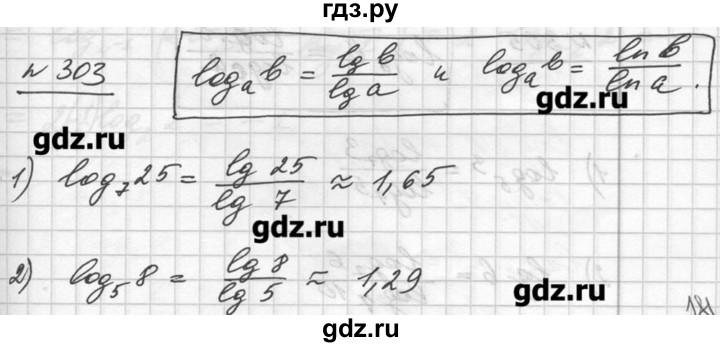 гдз.ру
№ 303
log_a b = lg b / lg a и log_a b = ln b / ln a .
gdz.ru
gdz.ru
1) log_7 25 = lg 25 / lg 7 ≈ 1,65
gdz.ru
2) log_5 8 = lg 8 / lg 5 ≈ 1,29
gdz.ru